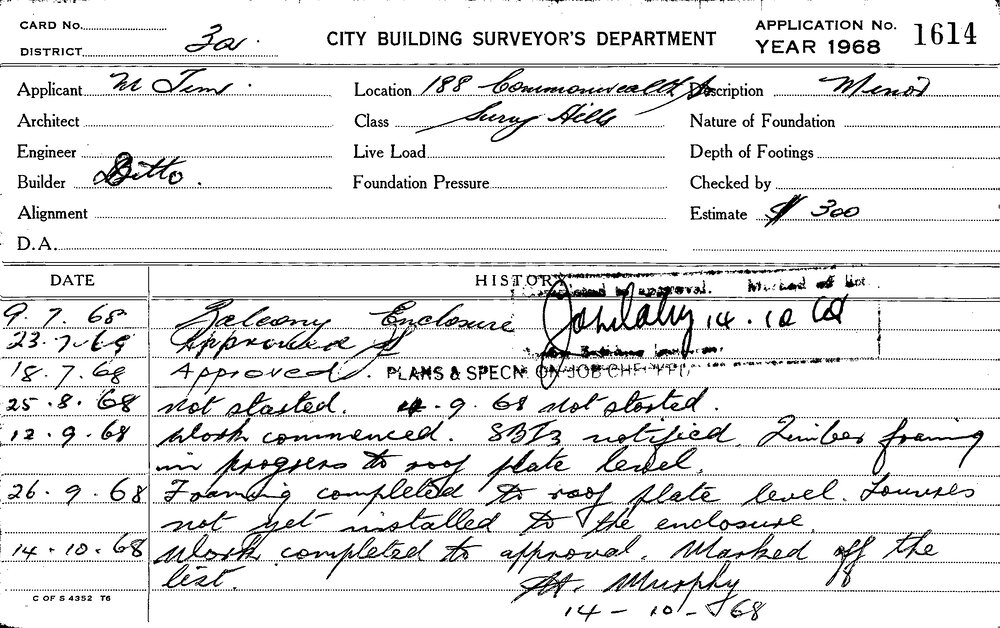 CARD No.
DISTRICT 3a.
CITY BUILDING SURVEYOR'S DEPARTMENT
APPLICATION No. 1614
YEAR 1968
Applicant M Tims. Location 188 Commonwealth St Description Minor
Architect Class Surry Hills Nature of Foundation
Engineer Live Load Depth of Footings
Builder Ditto. Foundation Pressure Checked by
Alignment Estimate $ 300
D.A.
DATE HISTORY
approval. Marked off list
9.7.68 Balcony Enclosure 14.10.68
23.7.68 Approved
18.7.68 Approved. PLANS & SPECN. ON JOB CHECKED
25.8.68 Not started. 4.9.68 not started.
12.9.68 Work commenced. SBI3 notified. Timber framing
in progress to roof plate level.
26.9.68 Framing completed to roof plate level. Louvres
not yet installed to the enclosure.
14-10-68 Work completed to approval. Marked off the
list. Murphy
14-10-68
C OF S 4352 T6